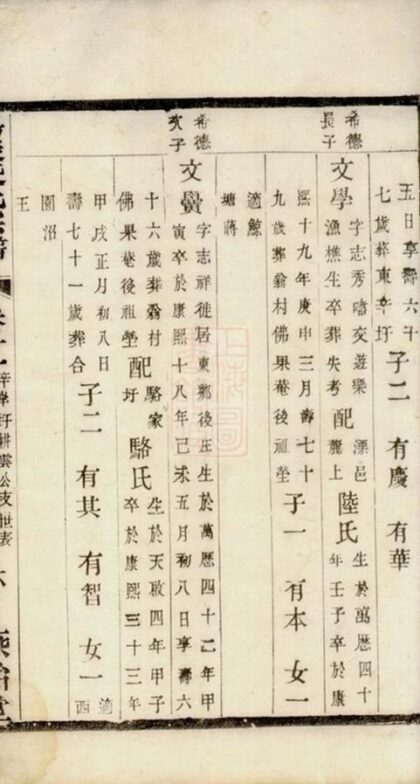 五日享壽六十
七歲葬東辛圩
子二 有慶 有華
希德
長子
文學
字志秀嗜交遊樂
漁樵生卒葬失考
配
漂邑
麗上
陸氏
生於萬歷四十
年壬子卒於康
熙十九年庚申三月壽七十
九歲葬翁村佛果菴後祖塋
子一 有本 女一
適鯨
塘蔣
希德
次子
文黌
字志祥徙居東郭後庄生於萬歷四十二年甲
寅卒於康熙十八年己未五月初八日享壽六
十六歲葬翁村
佛果菴後祖塋
配
駱家
圩
駱氏
生於天啟四年甲子
卒於康熙三十三年
甲戌正月初八日
壽七十一歲葬合
子二 有其 有智 女一
適
西
園沼
王
圩耕雲公支世表
六